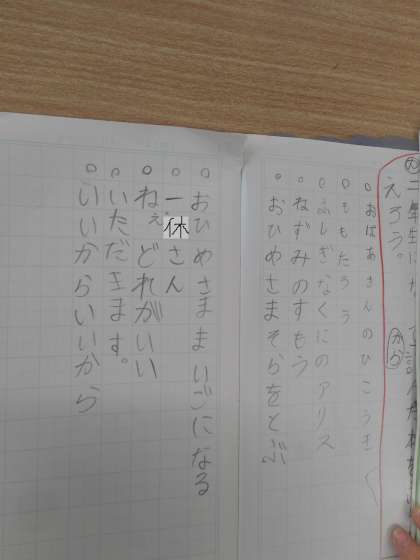 えらう。
から
○おばあさんのひこうき
○ももたろう
○ふしぎなくにのアリス
○ねずみのすもう
○おひめさまそらをとぶ
○おひめさま いごになる
○一休さん
○ねぇ どれがいい
○いただきます。
○いいからいいから